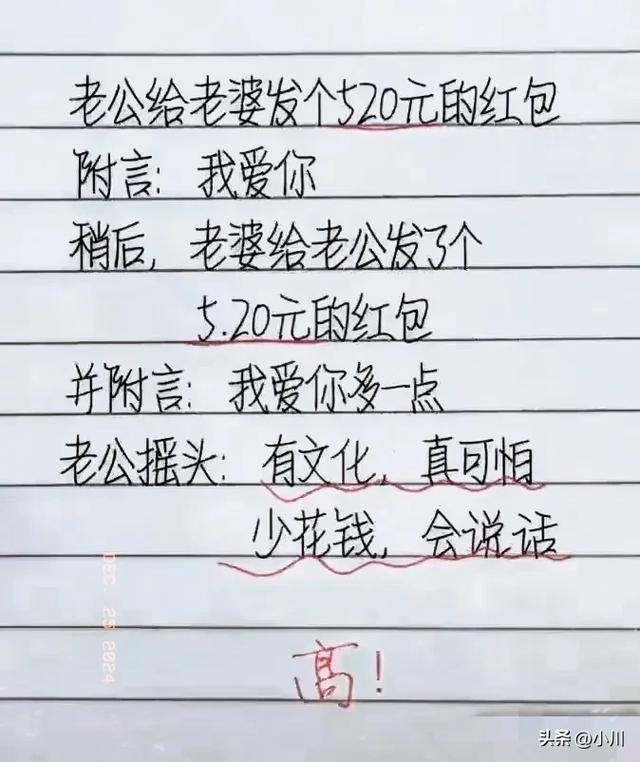 老公给老婆发个520元的红包
附言：我爱你
稍后，老婆给老公发了个
5.20元的红包
并附言：我爱你多一点
老公摇头：有文化，真可怕
少花钱，会说话
高！
DEC. 25 2024
头条 @小川